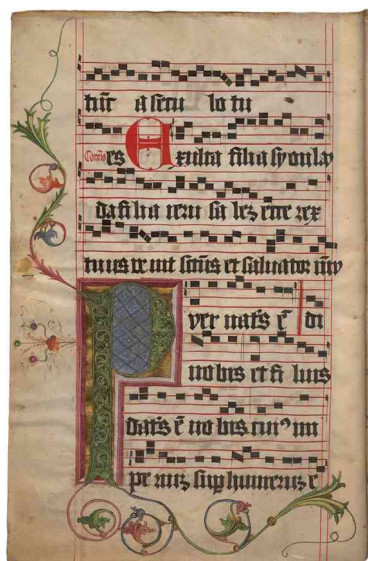 tūc a secu lo tu
es Exulta filia syon lau
da fi lia ieru sa lez ecce rex
tuus ve nit sctūs et saluator mū
Puer nat's ē
no bis et fi lius
dat's ē no bis cui⁹ im
pe riuz sup humeruz e